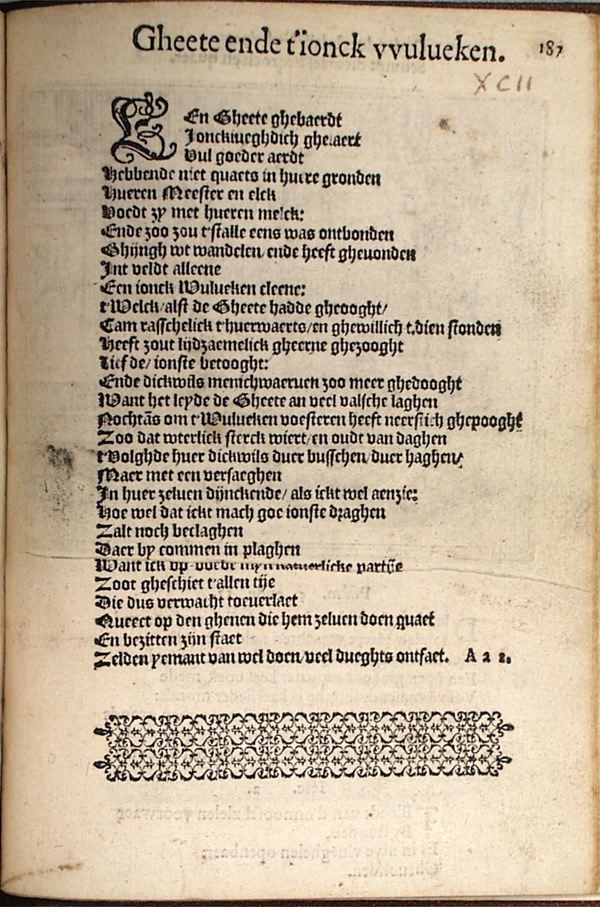 Gheete ende t'ionck vvulueken. 187
XCII
EEn Gheete ghebaerdt
Jonckiueghdich ghe.aert
Vul goeder aerdt
Hebbende niet quaets in huere gronden
Hueren Meester en elck
Voedt zy met hueren melck:
Ende zoo zou t'stalle eens was ontbonden
Ghijngh wt wandelen/ ende heeft gheuonden
Int veldt alleene
Een ionck Wulueken cleene:
t'Welck/alst de Gheete hadde gheooght/
Cam rasschelick t'huerwaerts/en ghewillich t.dien stonden
Heeft zout lijdzaemelick gheerne ghezooght
Lief de/ ionste betooght:
Ende dickwils menichwaeruen zoo meer ghedooght
Want het leyde de Gheete an veel valsche laghen
Nochtãs om t'Wulueken voesteren heeft neerstich ghepooght
Zoo dat wterlick sterck wiert/en oudt van daghen
t'Volghde huer dickwils duer busschen/duer haghen/
Maer met een versaeghen
In huer zeluen dijnckende/ als ickt wel aenzie:
Hoe wel dat ickt mach goe ionste draghen
Zalt noch beclaghen
Daer by commen in plaghen
Want ick op-voede mijn natuerlicke partije
Zoot gheschiet t'allen tije
Die dus verwacht toeuerlaet
Queect op den ghenen die hem zeluen doen quaet
En bezitten zijn staet
Zelden yemant van wel doen/veel dueghts ontfaet. A a 2.